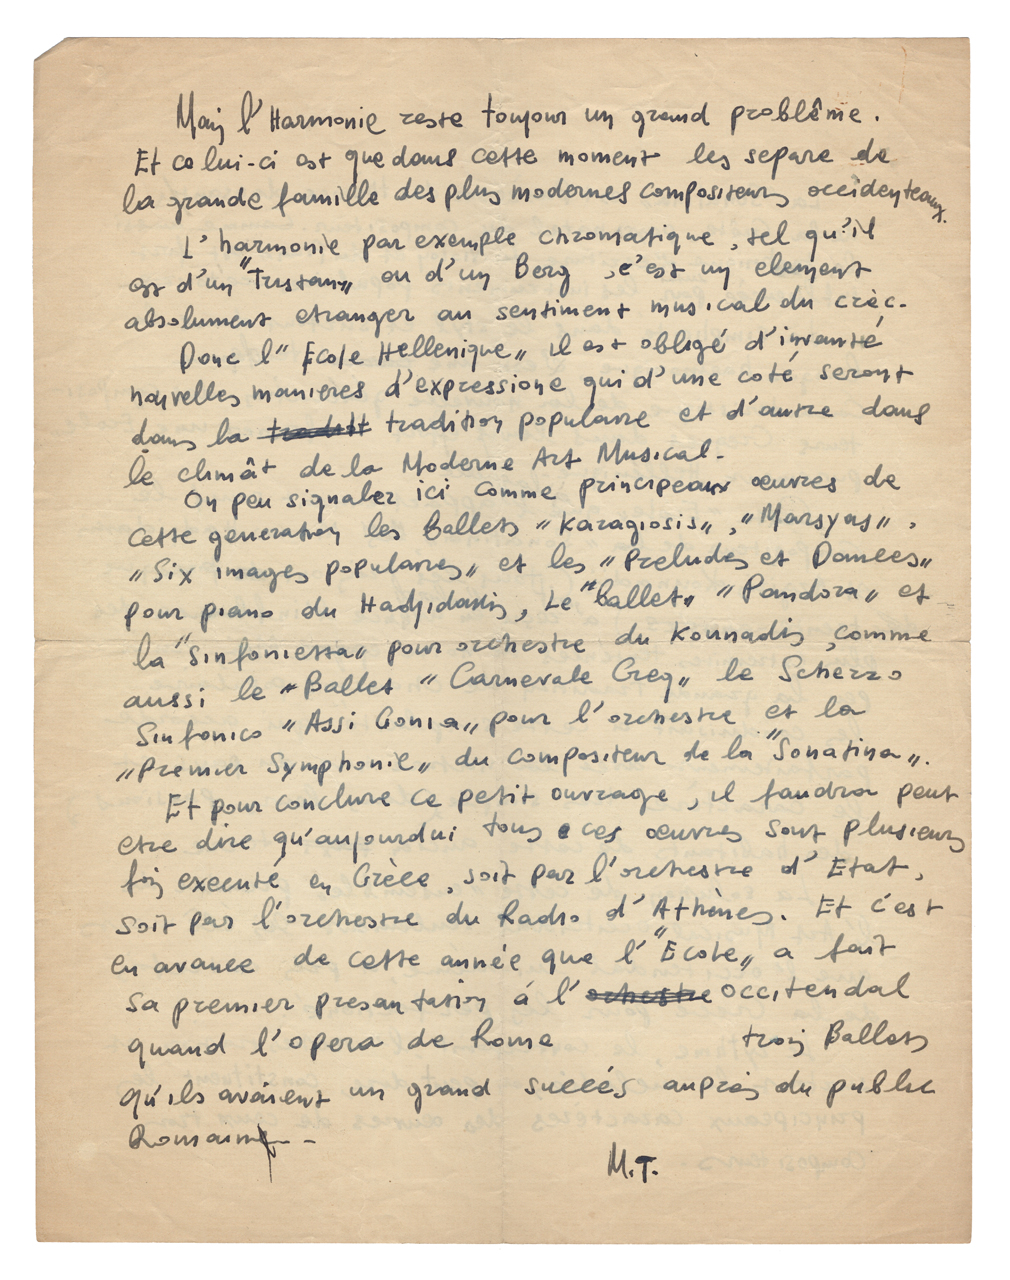 Mais l'Harmonie reste toujour un grand problême.
Et celui-ci est que dans cette moment les separe de
la grande famille des plus modernes compositeurs occidenteaux.
L'harmonie par exemple chromatique, tel qu'il
est d'un "Tristan" ou d'un Berg, c'est un element
absolument etranger au sentiment musical du crèc.
Donc l'"Ecole Hellenique" il est obligé d'invanté
nouvelles manieres d'expressione qui d'une coté seront
dans la tradition populaire et d'autre dans
le climât de la Moderne Art Musical.
On peu signaler ici comme principeaux œuvres de
cette generation les ballets "Karagiosis", "Marsyas",
"Six images populaires" et les "Preludes et Dances"
pour piano du Hadjidakis, Le "ballet" "Pandora" et
la "Sinfonietta" pour orchestre du Kounadis, comme
aussi le "Ballet "Carnevale Greq" le Scherzo
Sinfonico "Assi Gonia" pour l'orchestre et la
"Premier Symphonie" du compositeur de la "Sonatina".
Et pour conclure ce petit ouvrage, il faudra peut
etre dire qu'aujourdui tous ces œuvres sont plusieurs
fois executé en Grèce, soit par l'orchestre d'Etat,
soit par l'orchestre du Radio d'Athènes. Et c'est
en avance de cette année que l'"Ecole" a fait
sa premier presantation á l'orchestre occitendal
quand l'opera de Rome trois Ballets
qu'ils avaient un grand succés auprès du public
Romain. -
M.T.